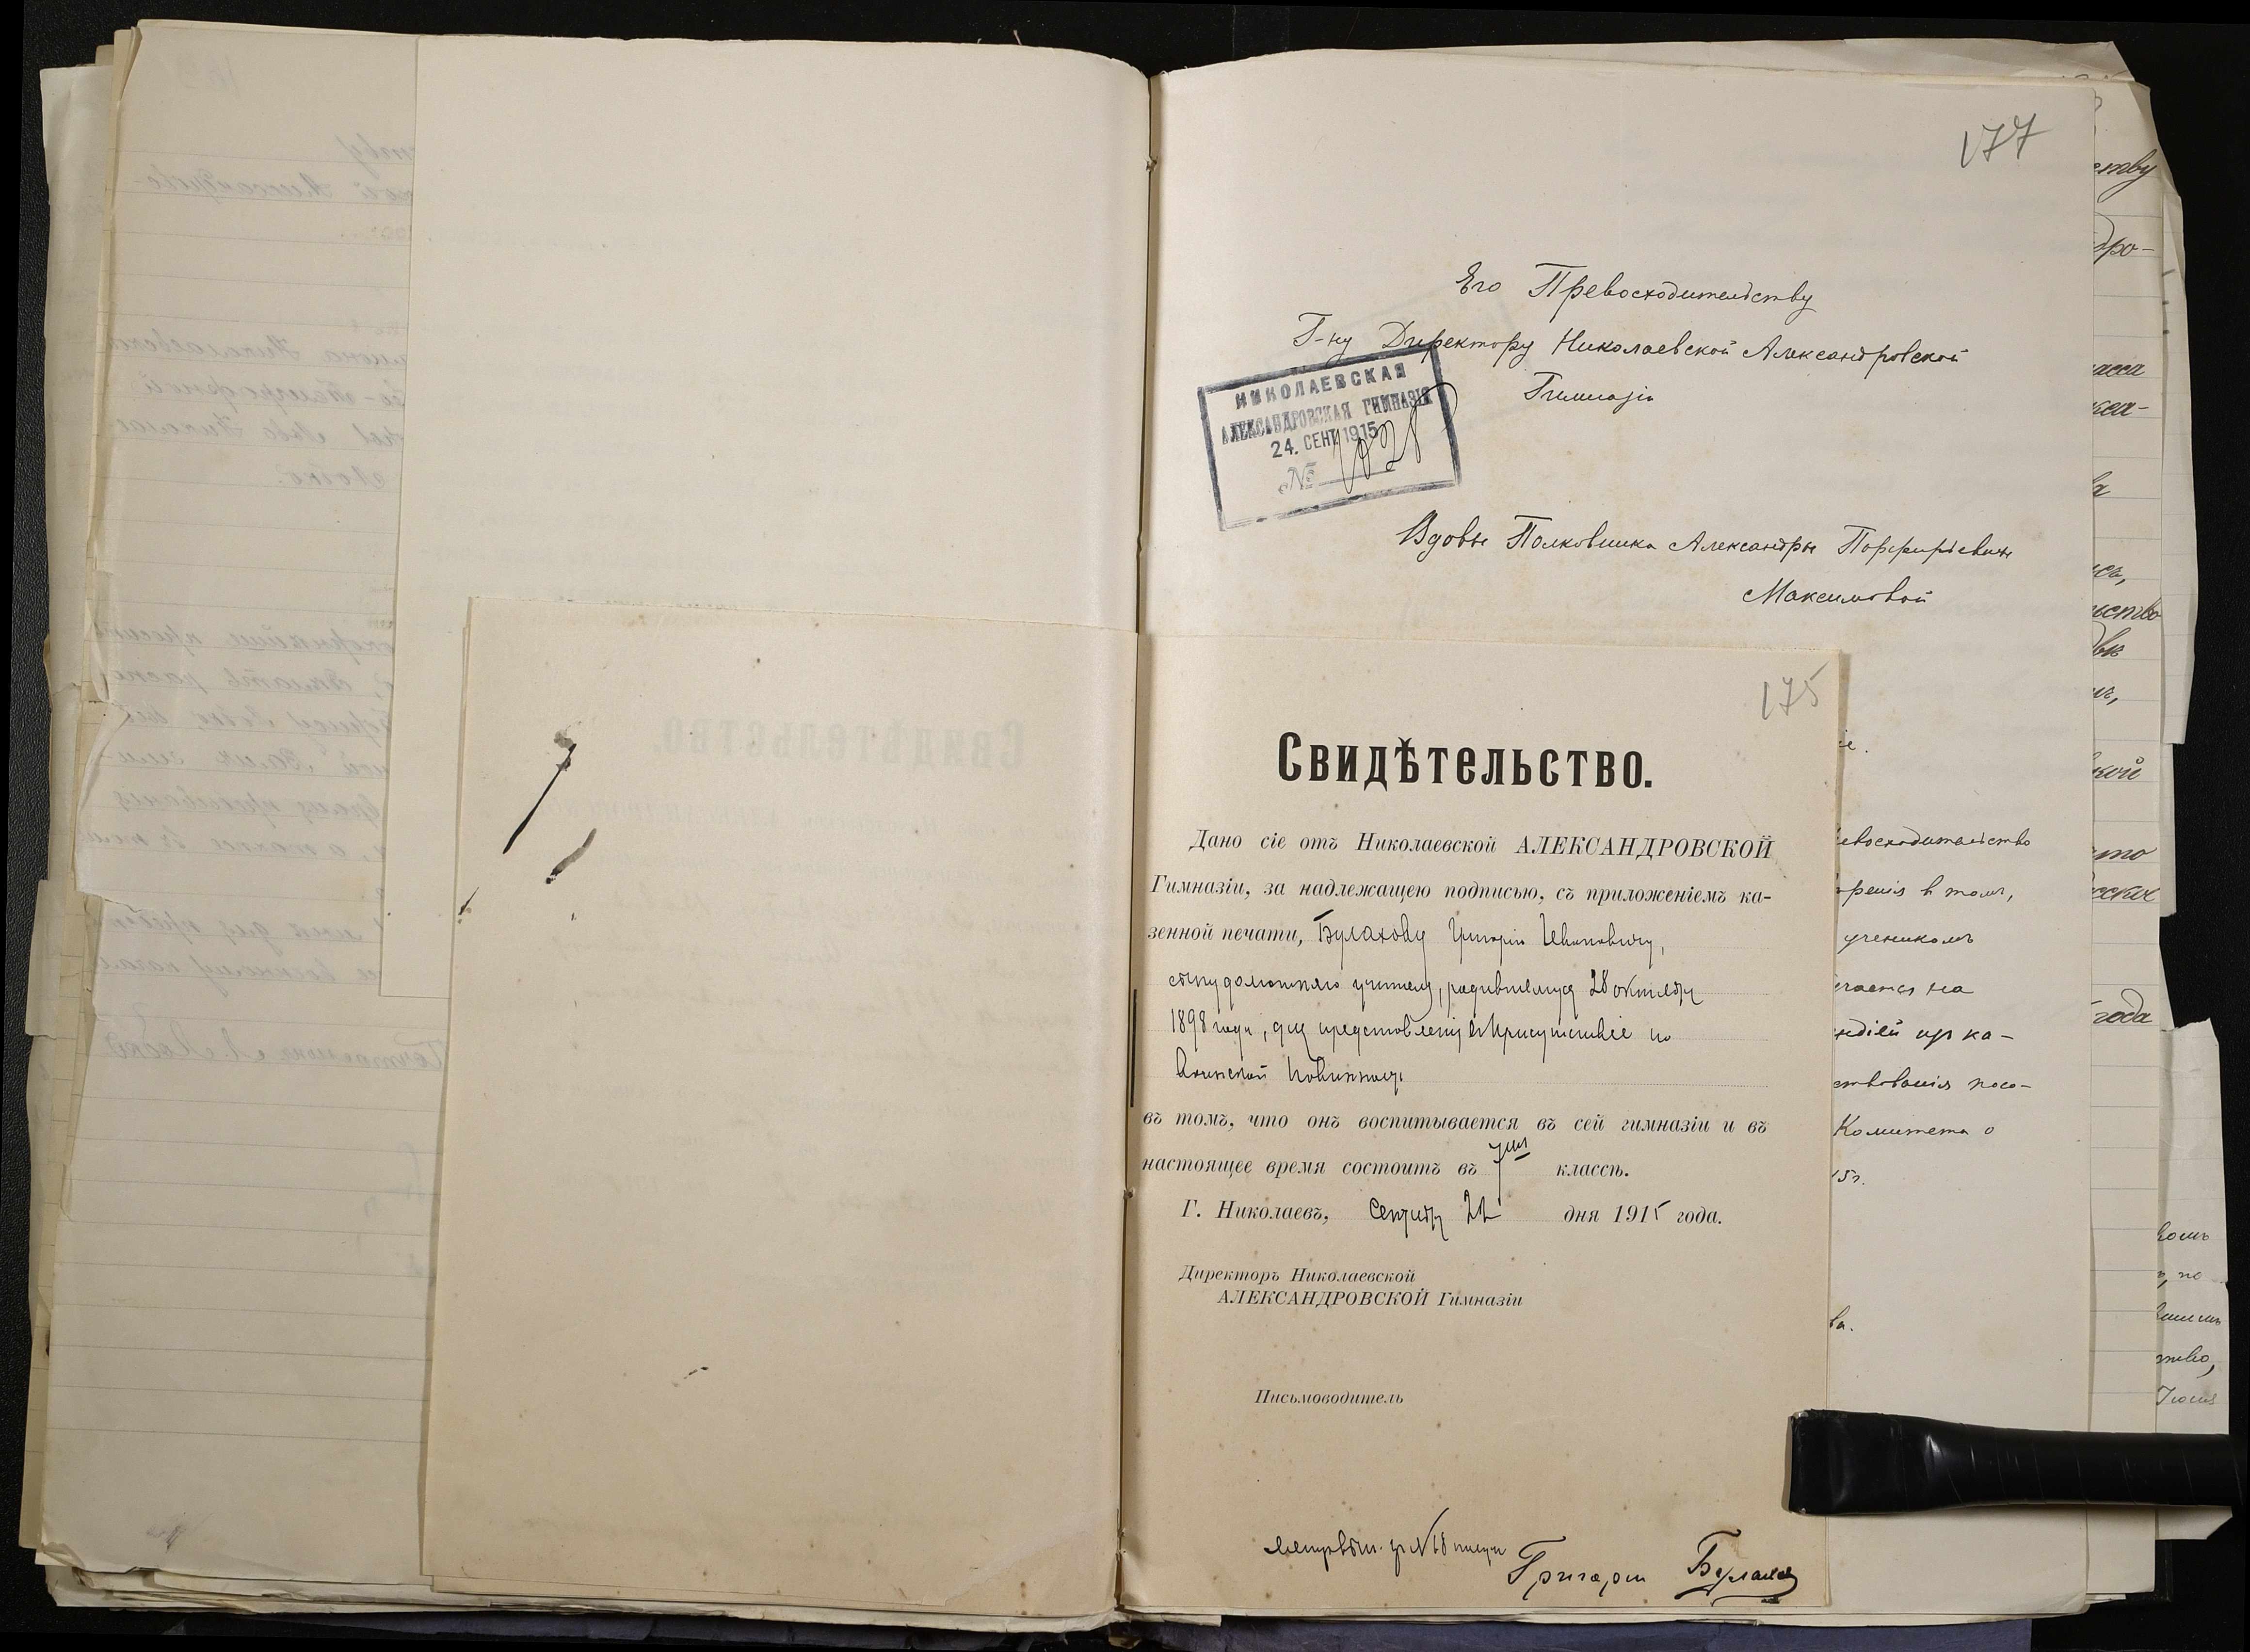 177
Его Превосходительству
Г-ну Директору Николаевской Александровской
Гимназіи
НИКОЛАЕВСКАЯ
АЛЕКСАНДРОВСКАЯ ГИМНАЗІЯ
24. СЕНТ 1915
№ 1028
Вдовы Полковника Александры Порфирьевны
Максимовой
175
Свидѣтельство.
Дано сіе отъ Николаевской АЛЕКСАНДРОВСКОЙ
Гимназіи, за надлежащею подписью, съ приложеніемъ ка-
зенной печати, Булахову Григорію Ивановичу,
сыну домашняго учителя, родившемуся 28 октября
1898 года, для представленія въ Присутствіе по
Воинской Повинности
въ томъ, что онъ воспитывается въ сей гимназіи и въ
настоящее время состоитъ въ 7мъ классѣ.
Г. Николаевъ, Сентября 22 дня 1915 года.
Директоръ Николаевской
АЛЕКСАНДРОВСКОЙ Гимназіи
Письмоводитель
Григорій Булахов
евосходительство
ренія в томъ,
ученикомъ
чается на
ндіей изъ ка-
ствованія посо-
Комитета о
15г.
ва.
ству
дро-
асса
кса-
ьство
кой
что
года